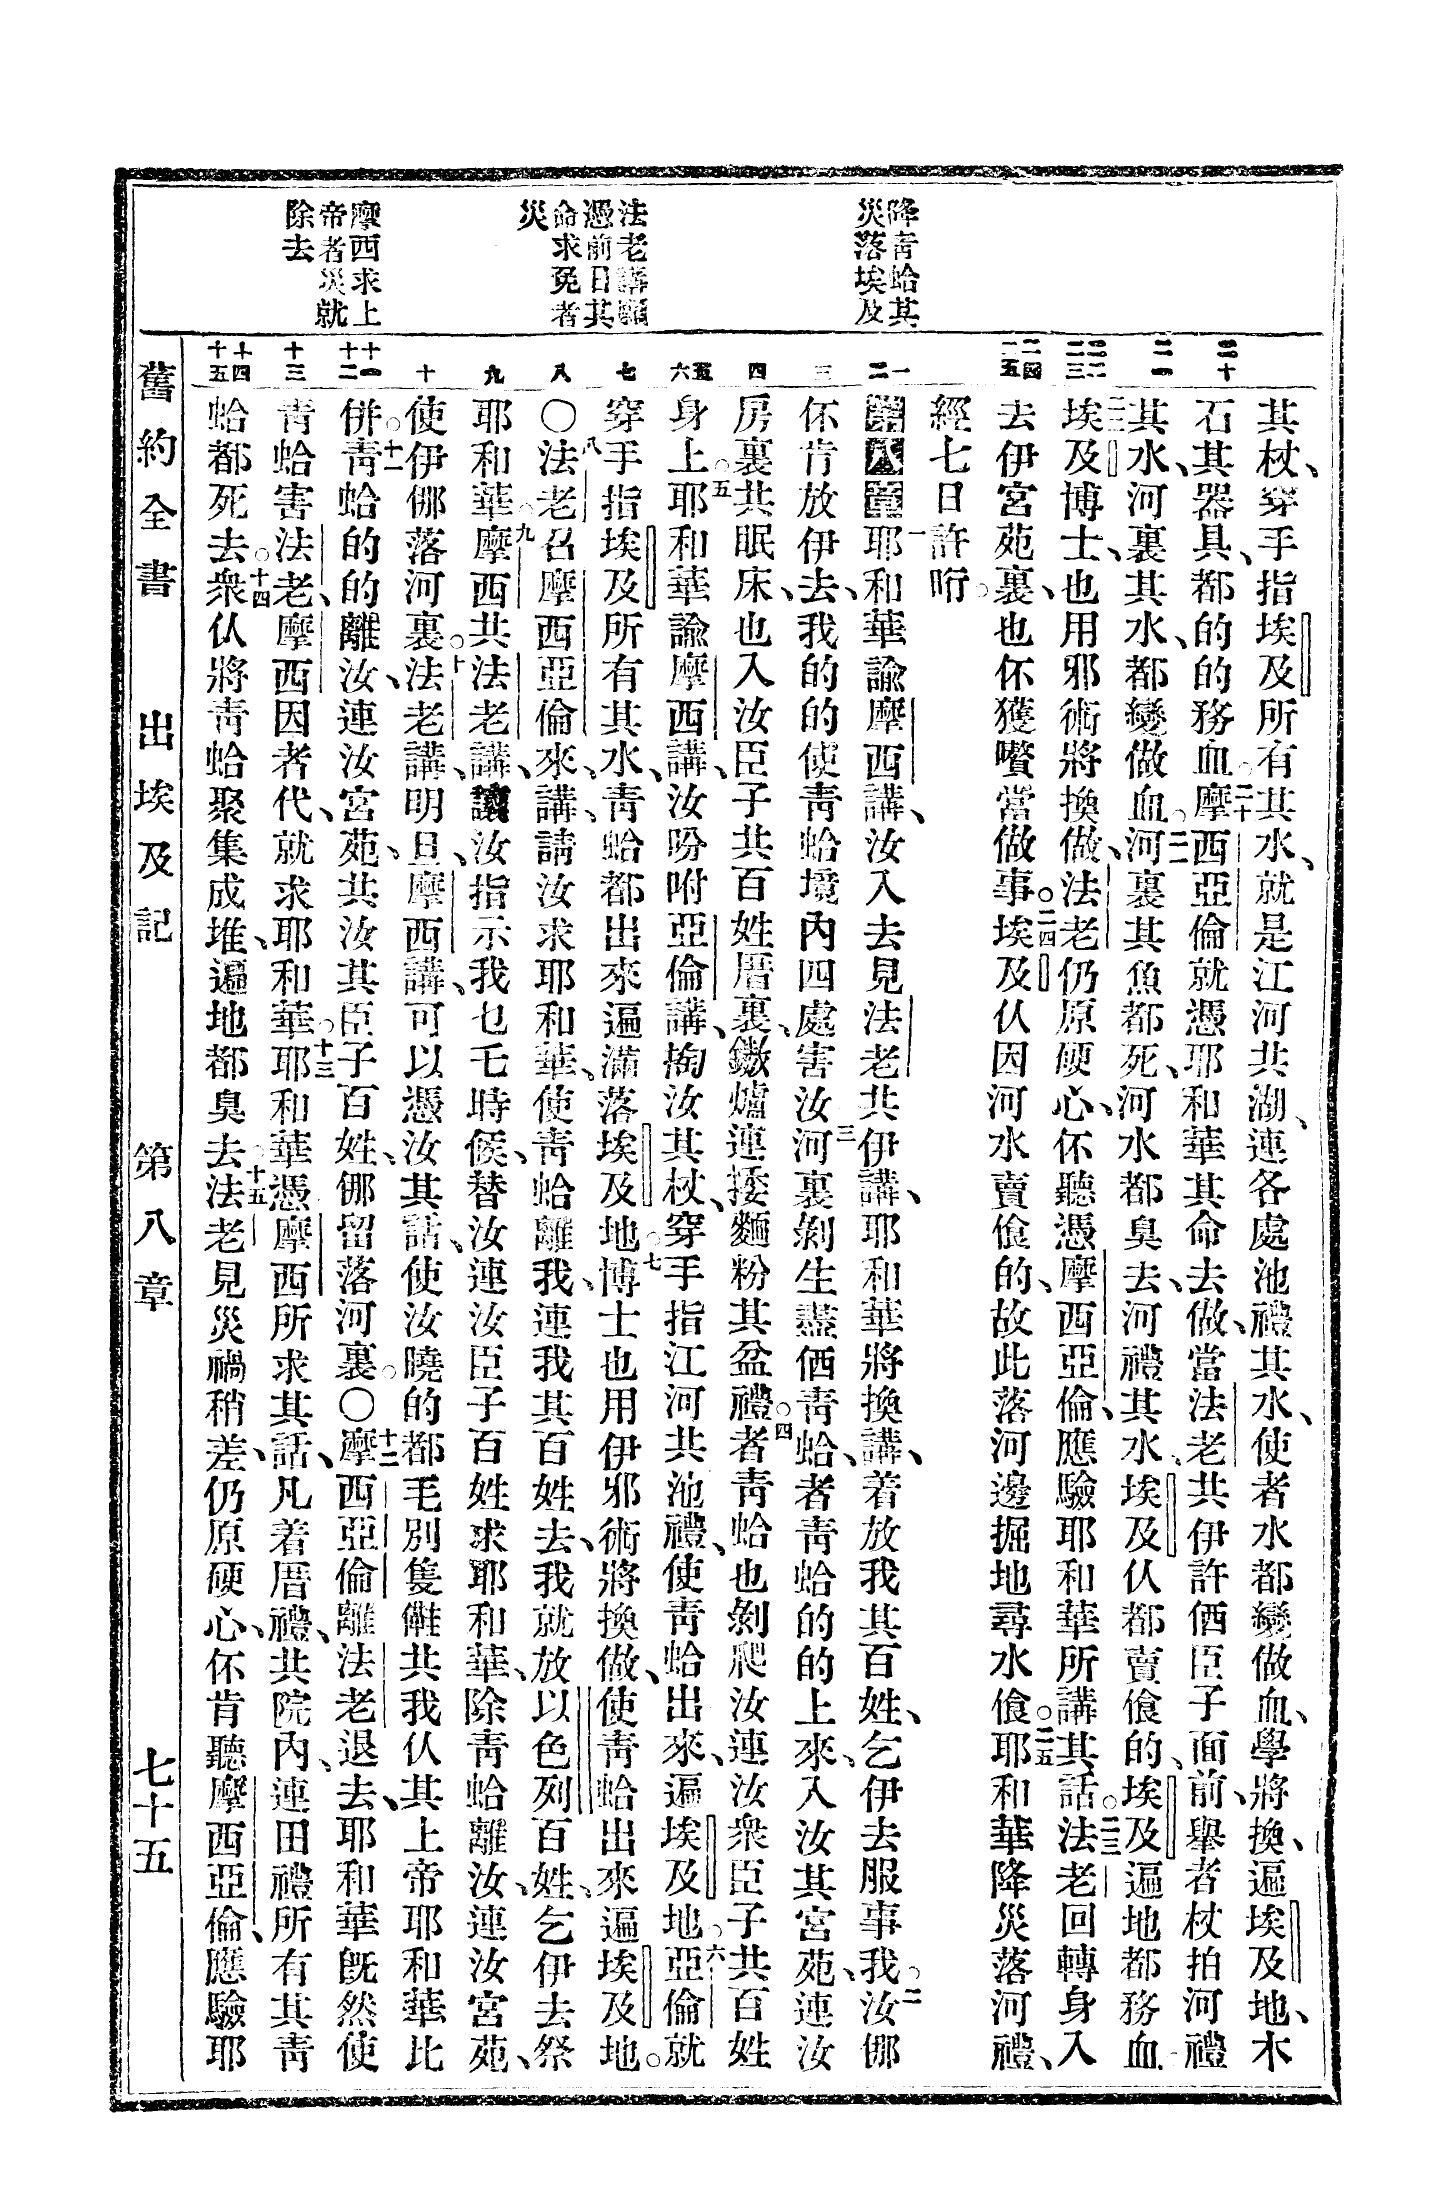 降青蛤其
災落埃及
法老講願
憑前日其
命求免者
災
摩西求上
帝者災就
除去
二十
二一
二二
二三
二四
二五
一
二
三
四
五
六
七
八
九
十
十一
十二
十三
十四
十五
其杖、穿手指埃及所有其水、就是江河共湖、連各處池禮其水、使者水都變做血、學將換、遍埃及地、木
石其器具、都的的務血。二十摩西亞倫就憑耶和華其命去做、當法老共伊許俹臣子面前、舉者杖拍河禮
其水、河裏其水、都變做血。二一河裏其魚都死、河水都臭去、河禮其水、埃及伩都賣飡的、埃及遍地都務血
二二埃及博士、也用邪術將換做、法老仍原硬心、伓聽憑摩西亞倫、應驗耶和華所講其話。二三法老回轉身入
去伊宮苑裏、也伓獲嚽當做事。二四埃及伩因河水賣飡的、故此落河邊掘地尋水飡。二五耶和華降災落河禮、
經七日許昕。
第八章一耶和華諭摩西講、汝入去見法老共伊講、耶和華將換講、着放我其百姓、乞伊去服事我。二汝㑚
伓肯放伊去、我的的使青蛤境內四處害汝。三河裏剝生盡俹青蛤、者青蛤的的上來、入汝其宮苑、連汝
房裏共眠床、也入汝臣子共百姓厝裏、鐓爐連捼麵粉其盆禮。四者青蛤也剝爬汝連汝衆臣子共百姓
身上。五耶和華諭摩西講、汝吩咐亞倫講、掏汝其杖、穿手指江河共池禮、使青蛤出來、遍埃及地。六亞倫就
穿手指埃及所有其水、青蛤都出來遍滿落埃及地。七博士也用伊邪術將換做、使青蛤出來遍埃及地。
○八法老召摩西亞倫來、講、請汝求耶和華、使青蛤離我、連我其百姓去、我就放以色列百姓、乞伊去祭
耶和華。九摩西共法老講、讓汝指示我乜乇時候、替汝連汝臣子百姓求耶和華、除青蛤離汝、連汝宮苑、
使伊㑚落河裏。十法老講、明旦、摩西講、可以憑汝其話、使汝曉的都毛別隻𠆧共我伩其上帝耶和華比
併。十一青蛤的的離汝、連汝宮苑、共汝其臣子百姓、㑚留落河裏。○十二摩西亞倫離法老退去、耶和華既然使
青蛤害法老、摩西因者代、就求耶和華。十三耶和華憑摩西所求其話、凡着厝禮、共院內、連田禮所有其青
蛤都死去。十四衆伩將青蛤聚集成堆、遍地都臭去。十五法老見災禍稍差、仍原硬心、伓肯聽摩西亞倫、應驗耶
舊約全書　出埃及記　第八章　七十五